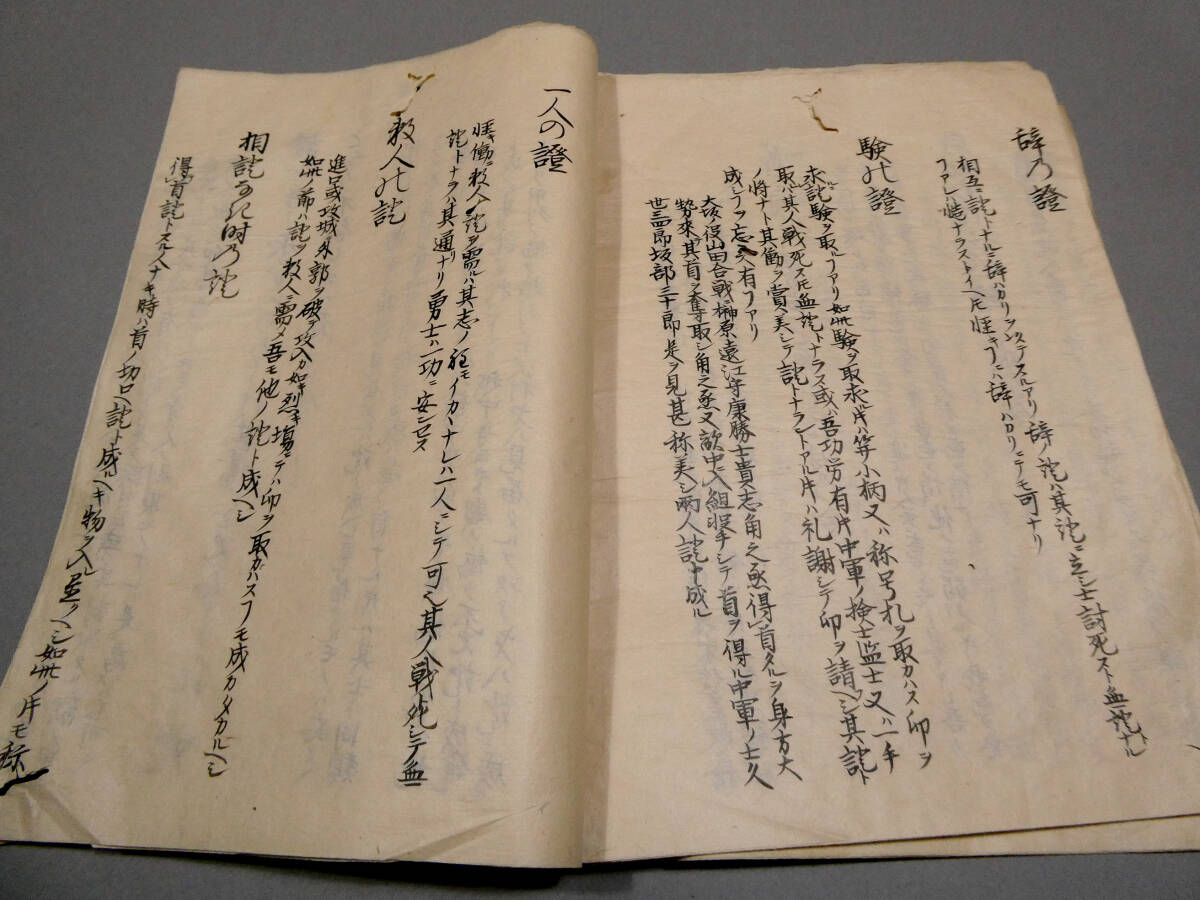 辞乃證
相互ニ詫トナルニ辞ハカリヲ以テスルアリ辞ノ詫ハ其詫ニ立シ士討死スト無詫ナル
ヿアレハ慥ナラストイヘ𪜈慥キ ニハ辞ハカリニテモ可ナリ
験の證
求詫験ヲ取ルヿアリ如此験ヲ取求ル片ハ笄小柄又ハ称号札ヲ取カハス印ヲ
取ハ其人戦死ス𪜈無詫トナラス或ハ吾功労有片中軍ノ検士監士又ハ一手
ノ将ナト其働ヲ賞美シテ詫トナラントアル片ハ礼謝シテ印ヲ請ヘシ其詫ト
成シヿヲ忘 有ヿアリ
大坂ノ役山田合戦ニ榊原遠江守康勝士貴志角之丞得首タルヲ身方大
勢来其首ヲ奪取シ角之丞又敵中ニ入組 シテ首ヲ得ル中軍ノ士久
世三四郎坂部三十郎是ヲ見甚称美シ両人詫ト成ル
一人の證
慥キ働ニ数人ノ詫ヲ需ルハ其志ノ イカヽナレハ一人ニシテ可也其ノ人戦死シテ無
詫トナラハ其通リナリ勇士ハ一功ニ安ンセス
数人の詫
進口或攻城外郭ヲ破テ攻入カ如キ烈キ場ニテハ印ヲ取カハスヿモ成カタカルヘシ
如此ノ節ハ詫ヲ数人ニ需メ吾モ他ノ詫ト成ヘシ
相詫なき時乃詫
得首詫トスル人ナキ時ハ首ノ切口ヘ詫ト成ルヘキ物ヲ入ル置ノヘシ如此ノ片モ